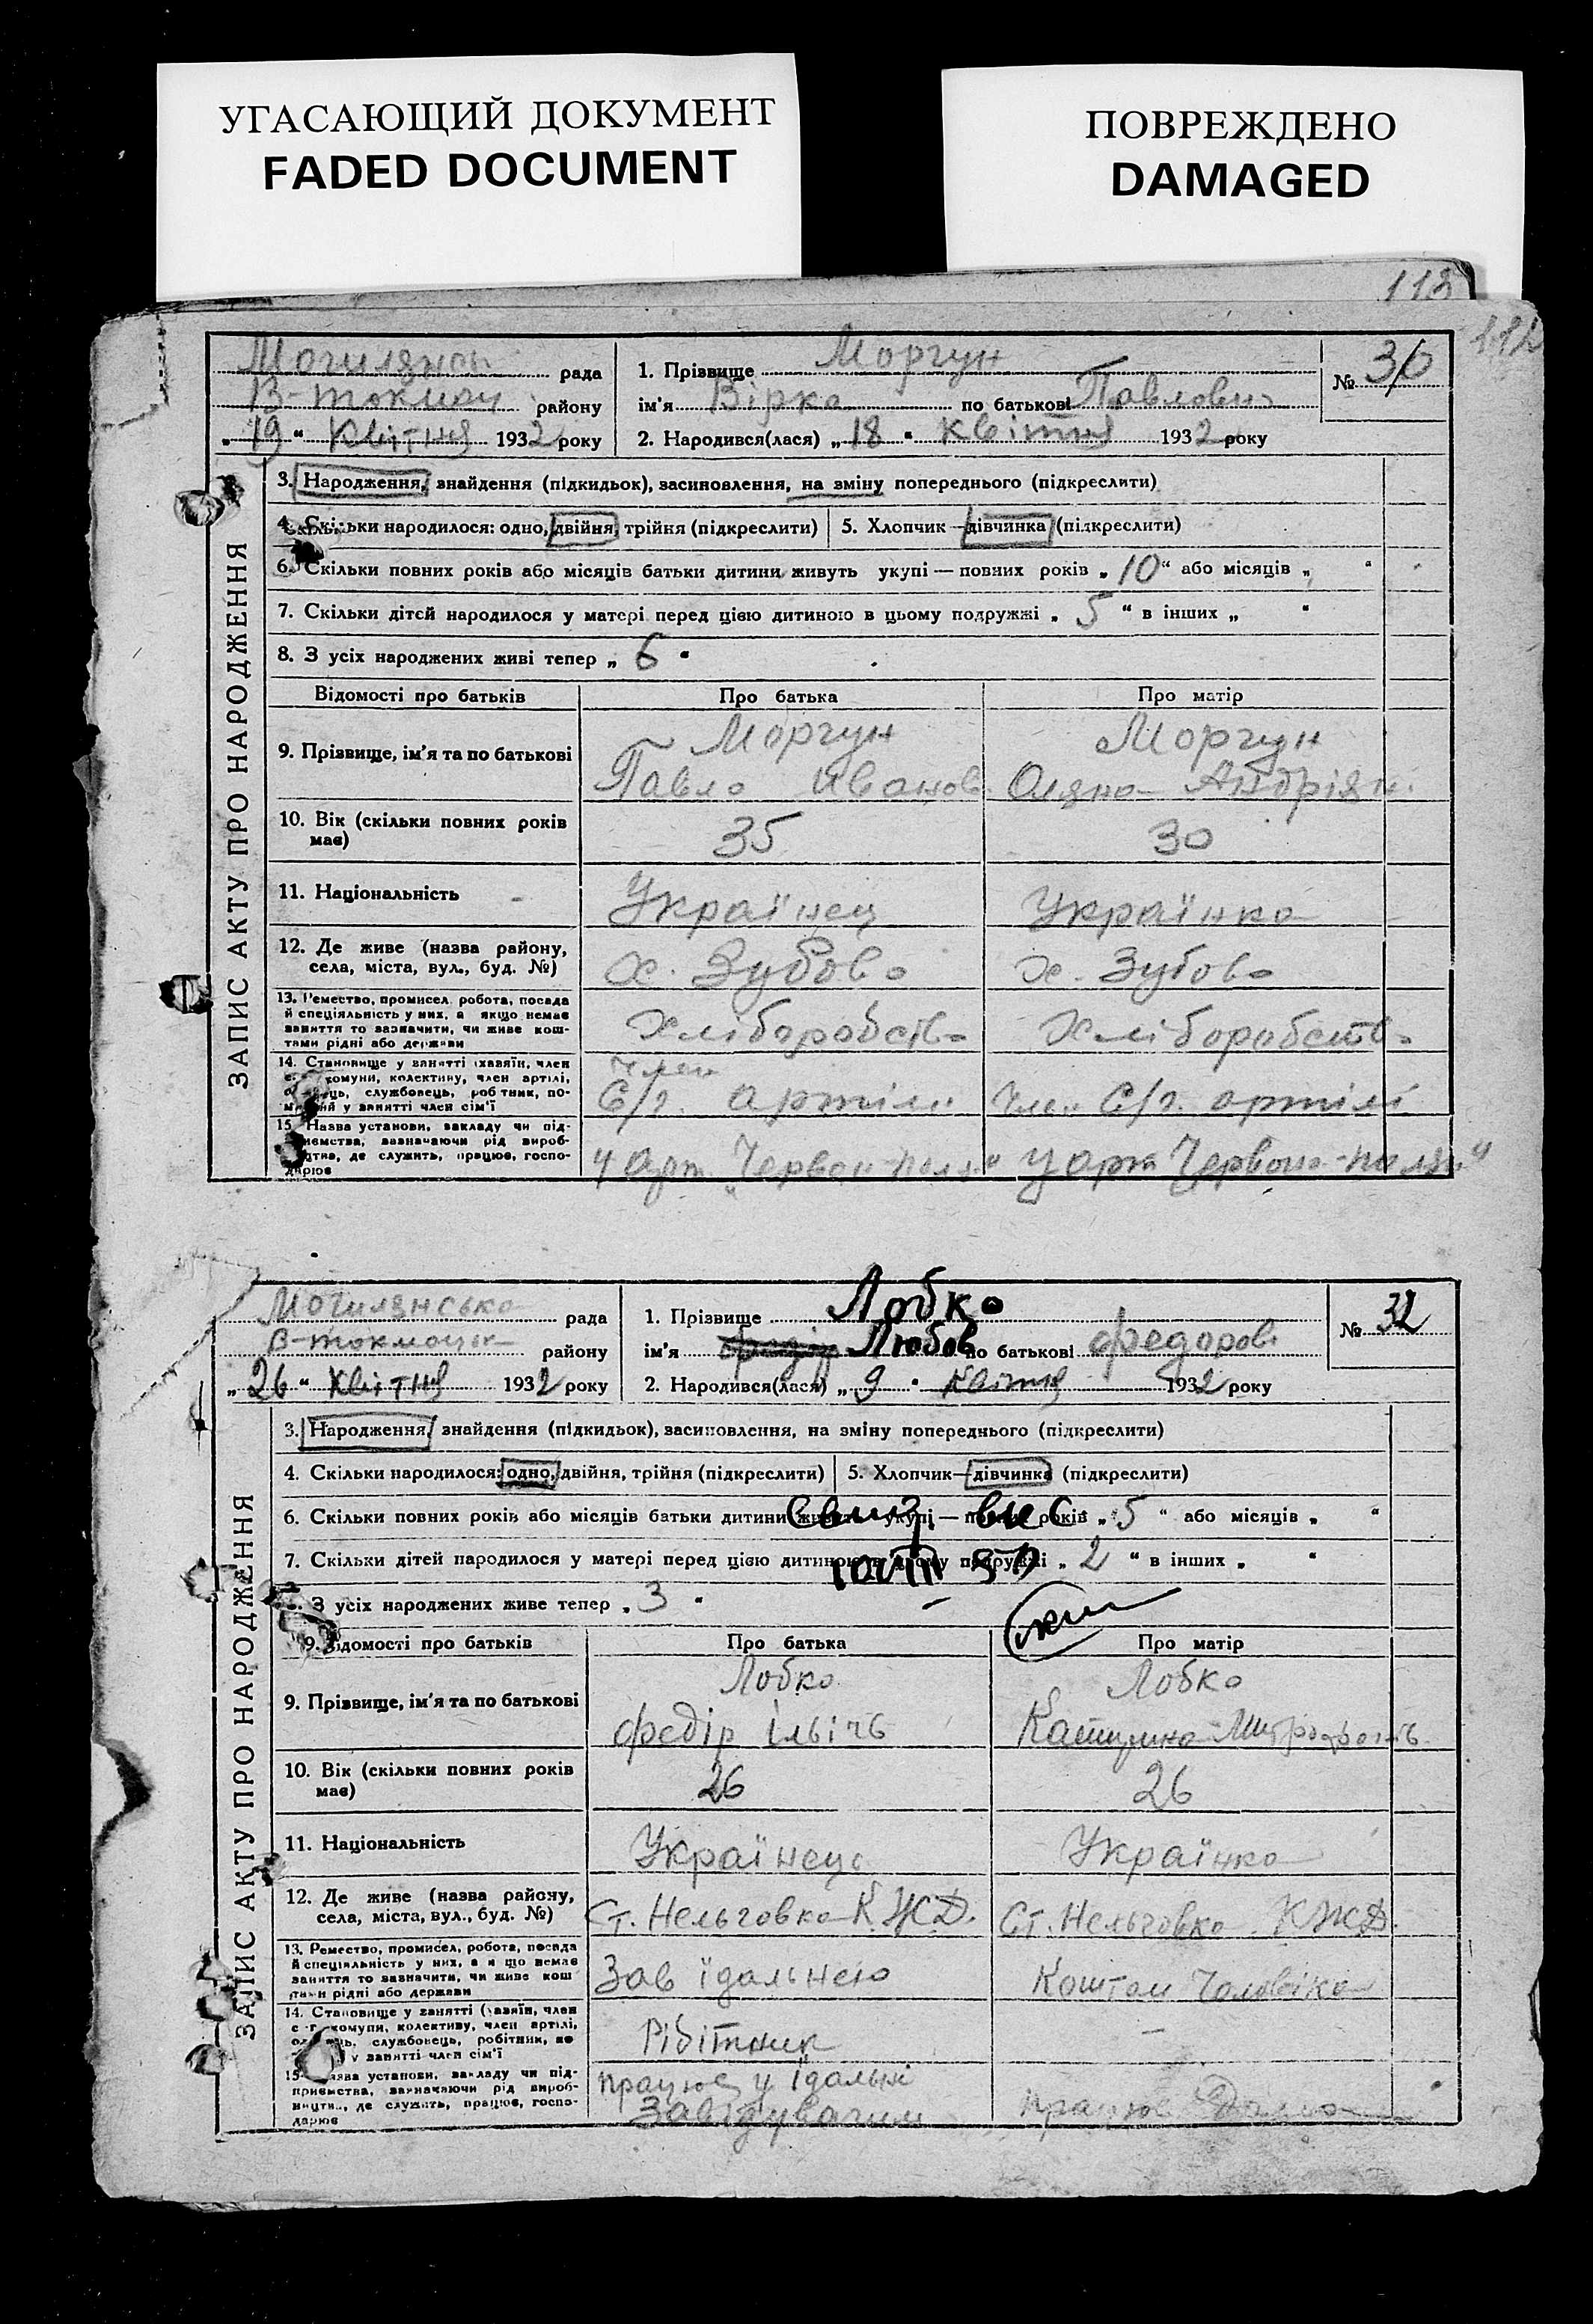 УГАСАЮЩИЙ ДОКУМЕНТ
FADED DOCUMENT
ПОВРЕЖДЕНО
DAMAGED
113
112
ЗАПИС АКТУ ПРО НАРОДЖЕННЯ
рада
В-токмац району
„19“ Квітня 1932 року
1. Прізвище Моргун
ім'я Вірка по батькові Павловна
2. Народився(лася) „18“ квітня 1932 року
№
3. Народження, знайдення (підкидьок), засиновлення, на зміну попереднього (підкреслити)
4. Скільки народилося: одно, двійня, трійня (підкреслити) 5. Хлопчик—дівчинка (підкреслити)
6. Скільки повних років або місяців батьки дитини живуть укупі — повних років „10“ або місяців „ “
7. Скільки дітей народилося у матері перед цією дитиною в цьому подружжі „5“ в інших „ “
8. З усіх народжених живі тепер „6“
Відомості про батьків Про батька Про матір
9. Прізвище, ім'я та по батькові
Моргун
Павло Иванов
Моргун
Оляна Андріян.
10. Вік (скільки повних років має)
35
30
11. Національність
Українец
Українка
12. Де живе (назва району,
села, міста, вул., буд. №)
х. Зубово
х. Зубово
13. Ремество, промисел, робота, посада
й спеціяльність у них, а якщо немає
заняття то зазначити, чи живе кош-
тами рідні або держави
Хліборобство
Хліборобство
14. Становище у занятті (хазяїн, член
комуни, колективу, член артілі,
службовець, робітник, по-
у занятті член сім'ї
член
С/г. артіли
Член С/г. артілі
15. Назва установи, закладу чи під-
приємства, зазначаючи рід вироб-
ництва, де служить, працює, госпо-
дарює
у арт.
у арт
ЗАПИС АКТУ ПРО НАРОДЖЕННЯ
Могилянська рада
В-токмацьк району
„26“ Квітня 1932 року
1. Прізвище Лобко
ім'я Любов по батькові Федоров
2. Народився(лася) „9“ Квітня 1932 року
№ 32
3. Народження, знайдення (підкидьок), засиновлення, на зміну попереднього (підкреслити)
4. Скільки народилося: одно, двійня, трійня (підкреслити) 5. Хлопчик—дівчинка (підкреслити)
6. Скільки повних років або місяців батьки дитини живуть укупі — повних років „5“ або місяців „ “
7. Скільки дітей народилося у матері перед цією дитиною в цьому подружжі „2“ в інших „ “
З усіх народжених живе тепер „3“
9. Відомості про батьків Про батька Про матір
9. Прізвище, ім'я та по батькові
Лобко
Федір Ільічь
Лобко
Катирина
10. Вік (скільки повних років має)
26
26
11. Національність
Українець
Українка
12. Де живе (назва району,
села, міста, вул., буд. №)
Ст. Нельговка К.Ж.Д.
Ст. Нельговка КЖД.
13. Ремество, промисел, робота, посада
й спеціяльність у них, а якщо немає
заняття то зазначити, чи живе кош
тами рідні або держави
Зав їдальнею
Коштом Чоловіка
14. Становище у занятті (хазяїн, член
комуни, колективу, член артілі,
службовець, робітник, по
у занятті член сім'ї
Рібітник
—
15. Назва установи, закладу чи під-
приємства, зазначаючи рід вироб-
ництва, де служить, працює, госпо-
дарює
працює у їдальні
Завідувачим
працює Дома